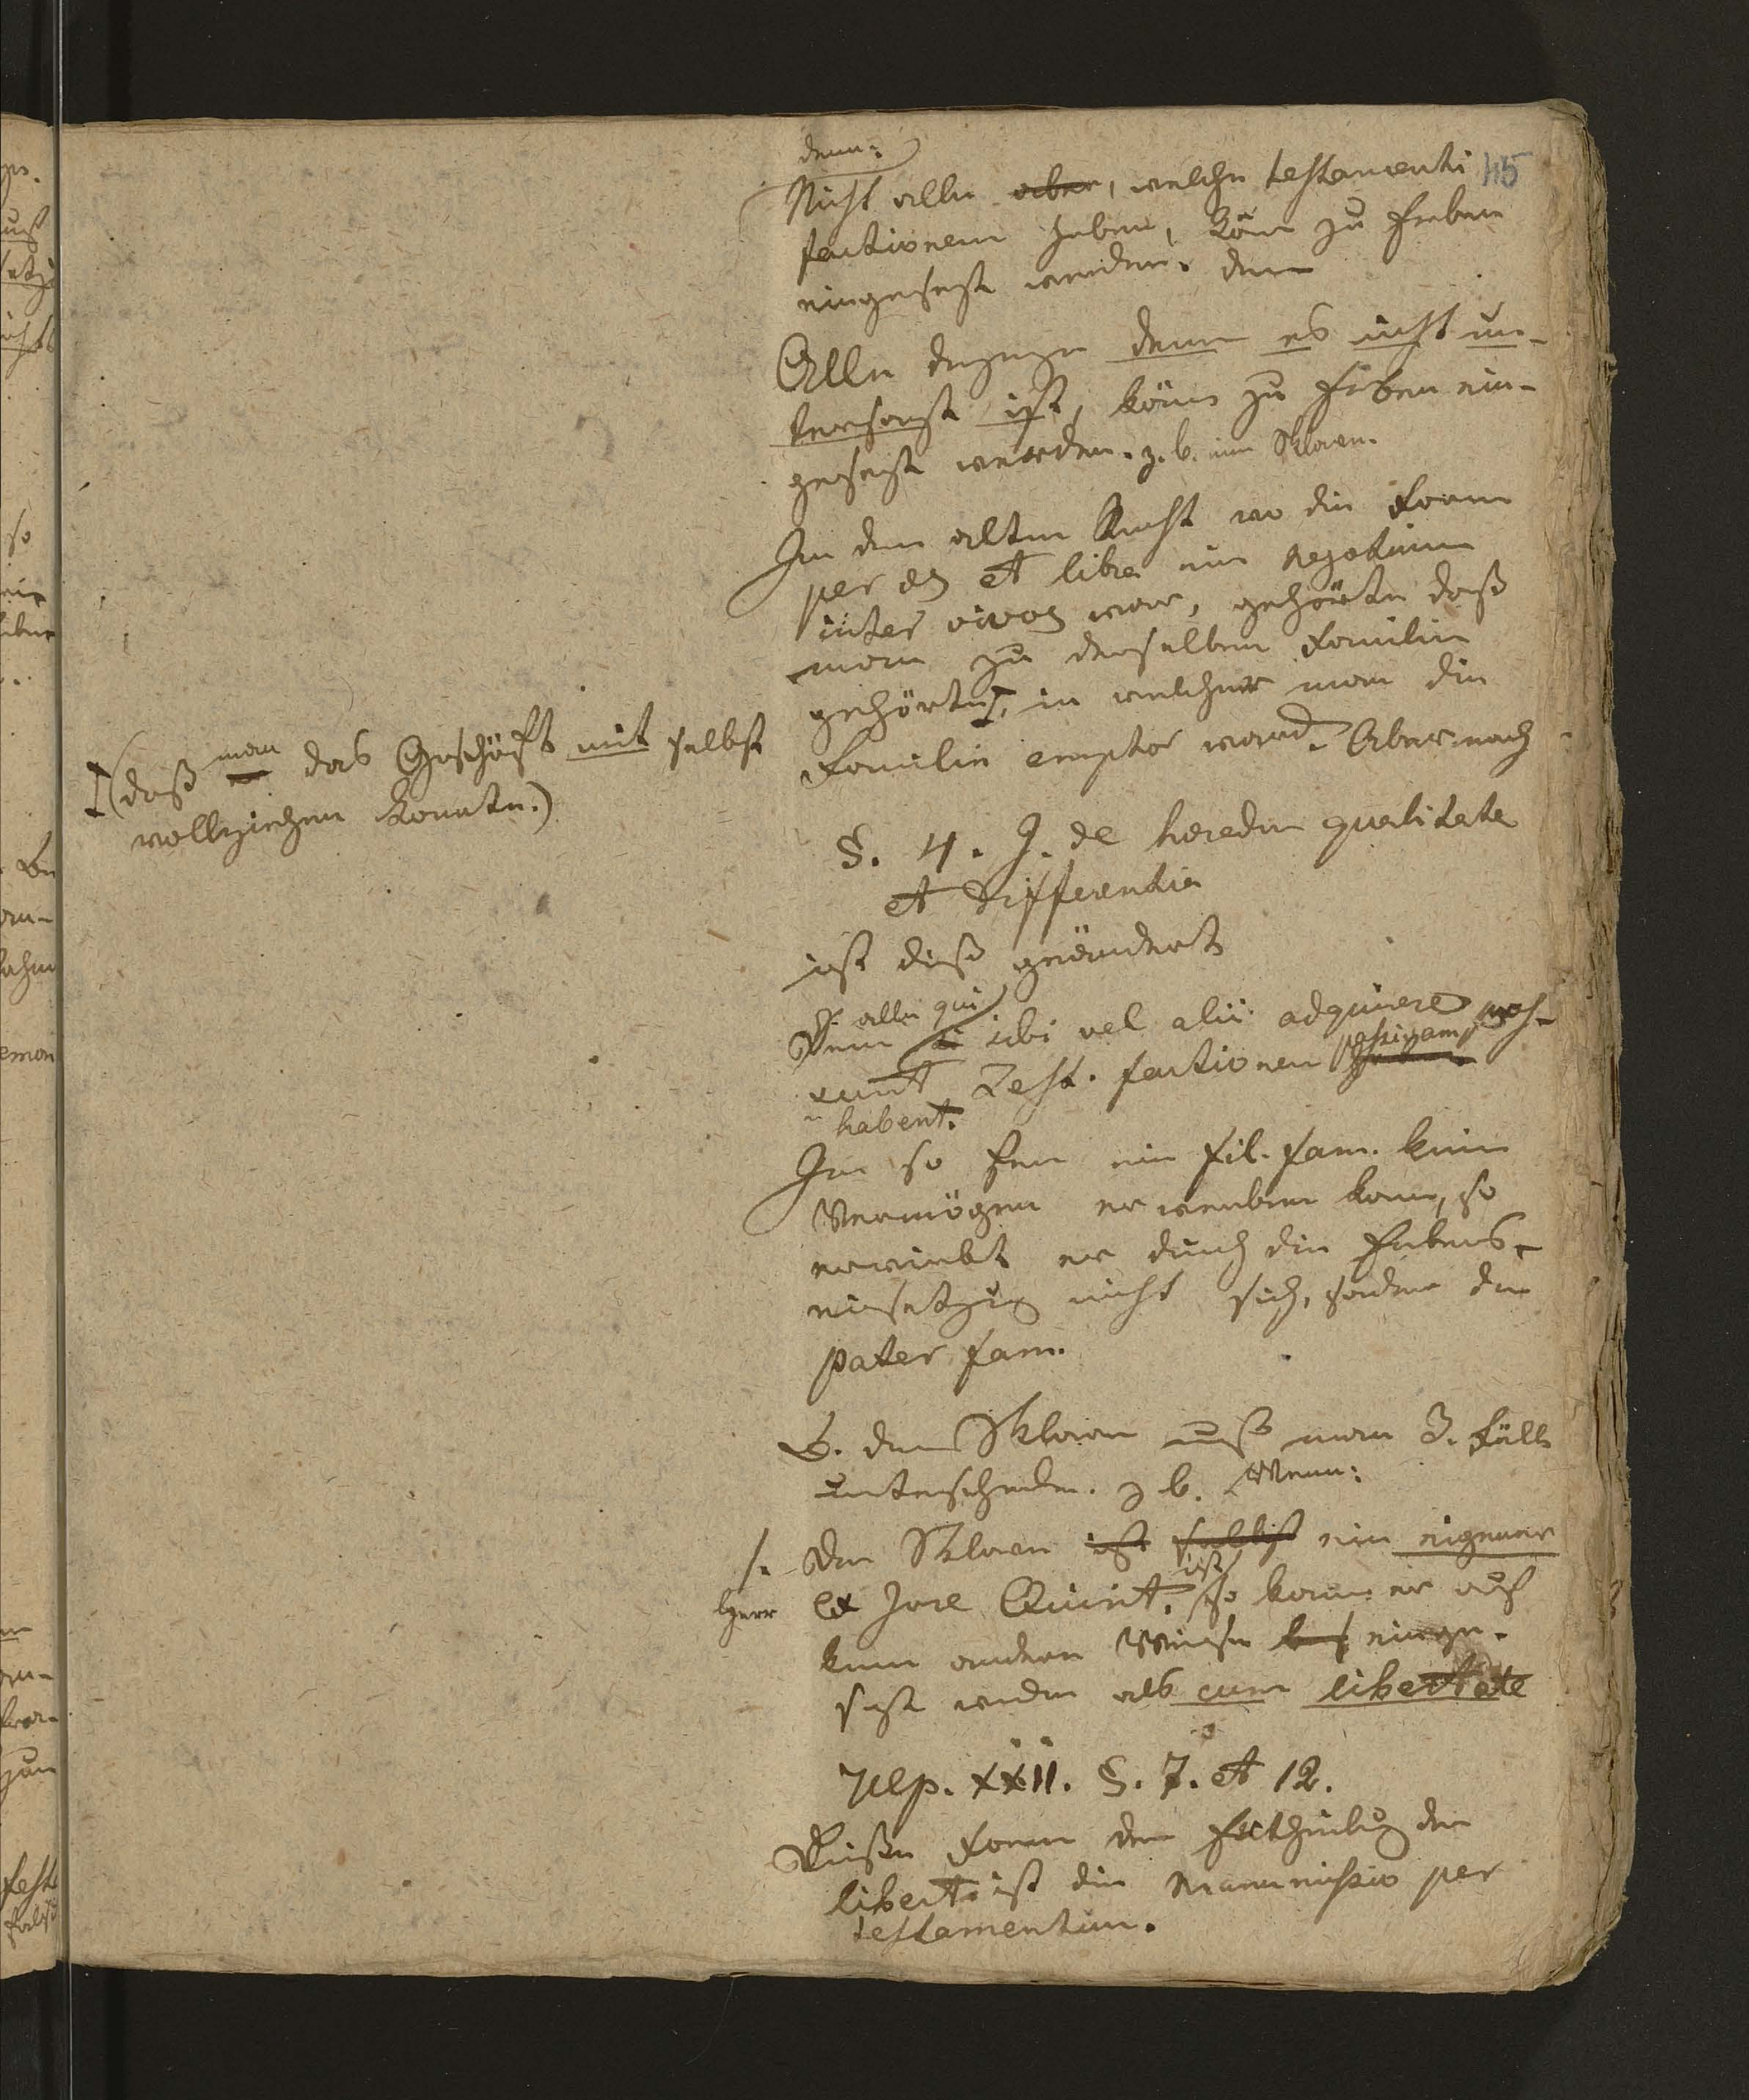 denn:
Nicht alle aber, welche testamenti
45
factionem haben, könn zu Erben
eingesezt werden. den
Alle degegen denen es nicht un-
tersagt ist, könn zu Erben ein-
gesezt werden. z. b. ein Sklaven.
In dem alten Recht wo die Form
per aes et libra ein negotium
inter vivos war, gehörte daß
man zu derselben Familie
gehörte, in welcher man die
Familie emptor ward. Aber nach
(daß man das Geschäft mit selbst
vollziehen konnte.)
§. 4. J. de heredum qualitate
et differentia
ist dieß geändert
D. alle qui
Denn sibi vel alii adquirere pos-
sunt Test. factionem passivam
habent.
In so fern ein fil. fam. kein
Vermögen erwerben kann, so
erwirbt er durch die Erbens-
einsetzug nicht sich, sondern den
pater fam.
B. den Sklaven muß man 3. Fälle
unterscheiden. z b. Wenn:
1. Der Sklaven ist selbst ein eigener
Herr ex Jure Quirit. ist so kann er auf
keine andere Weise eingen-
sezt werden als cum libertate
Ulp. XXII. §. 7. et 12.
Diese Form der Ertheilug der
libert. ist die Manumissio per
testamentum.